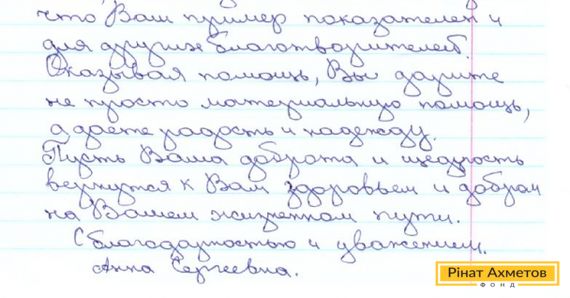 что Ваш пример показателен и
для других благотворителей.
Оказывая помощь, Вы дарите
не просто материальную помощь,
а даете радость и надежду.
Пусть Ваша доброта и щедрость
вернутся к Вам здоровьем и добром
на Вашем жизненном пути.
С благодарностью и уважением.
Анна Сергеевна.
Рінат Ахметов
ФОНД